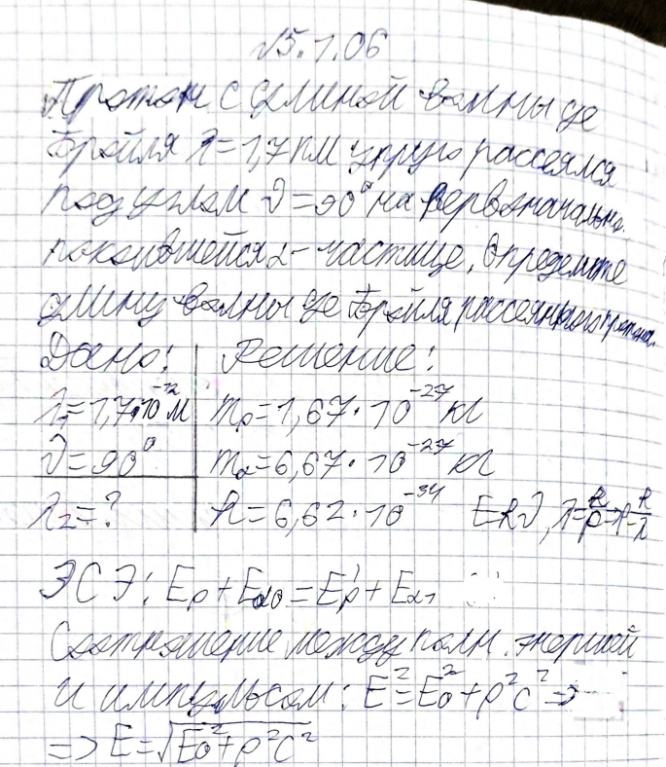 √5.1.06
Протон с длиной волны де
Бройля λ=1,7 пм упруго рассеялся
под углом ϑ=90° на первоначально
покоившейся α-частице. Определите
длину волны де Бройля рассеянного протона.
Дано: Решение:
λ₁=1,7·10⁻¹² м mₚ=1,67·10⁻²⁷ кг
ϑ=90° mα=6,67·10⁻²⁷ кг
λ₂=? h=6,62·10⁻³⁴ E=hν, λ=h/p⇒p=h/λ
ЗСЭ: Eₚ+Eα₀=Eₚ'+Eα₁
Соотношение между полн. энергией
и импульсом: E²=E₀²+p²c² =>
=> E=√(E₀²+p²c²)